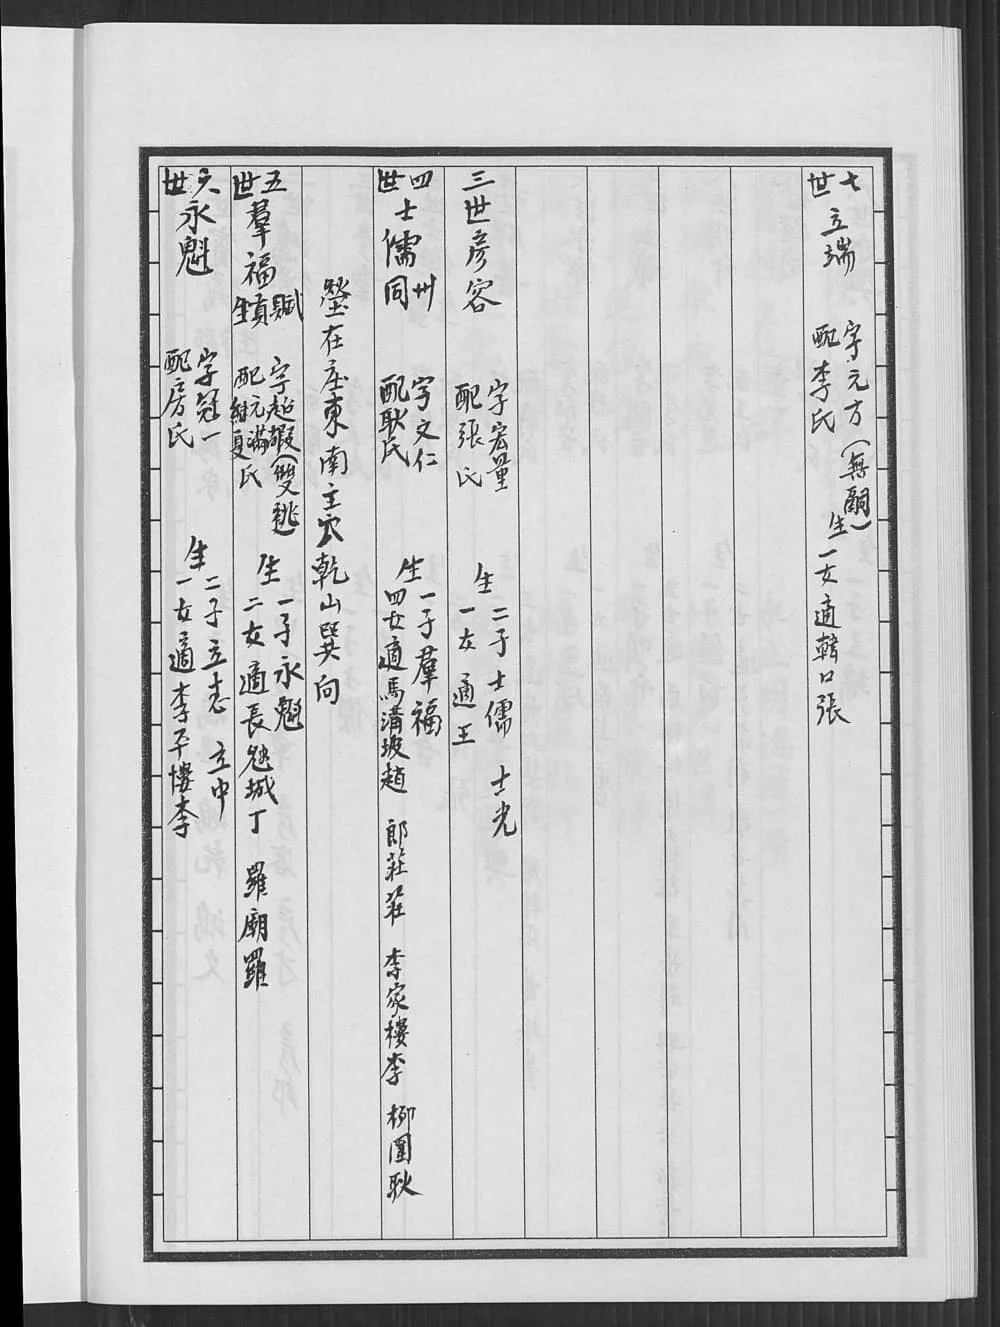 七世 立端 字元方(無嗣) 配李氏 生一女適韓口張
三世彦容 字宏量 配張氏 生二子士儒 士光 一女適王
四世 士儒 州同 字文仁 配耿氏 生一子羣福 四女適馬溝坡趙 郎莊莊 李家樓李 柳園耿
塋在庄東南主穴乾山巽向
五世 羣福 賦鎮 字超嘏(雙祧) 配元滿 継夏氏 生一子永魁 二女適長勉城丁 羅廟羅
六世 永魁 字冠一 配房氏 生二子立志 立中 一女適李平樓李